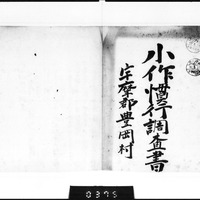 小作慣行調査書
宇摩郡豊岡村
0375